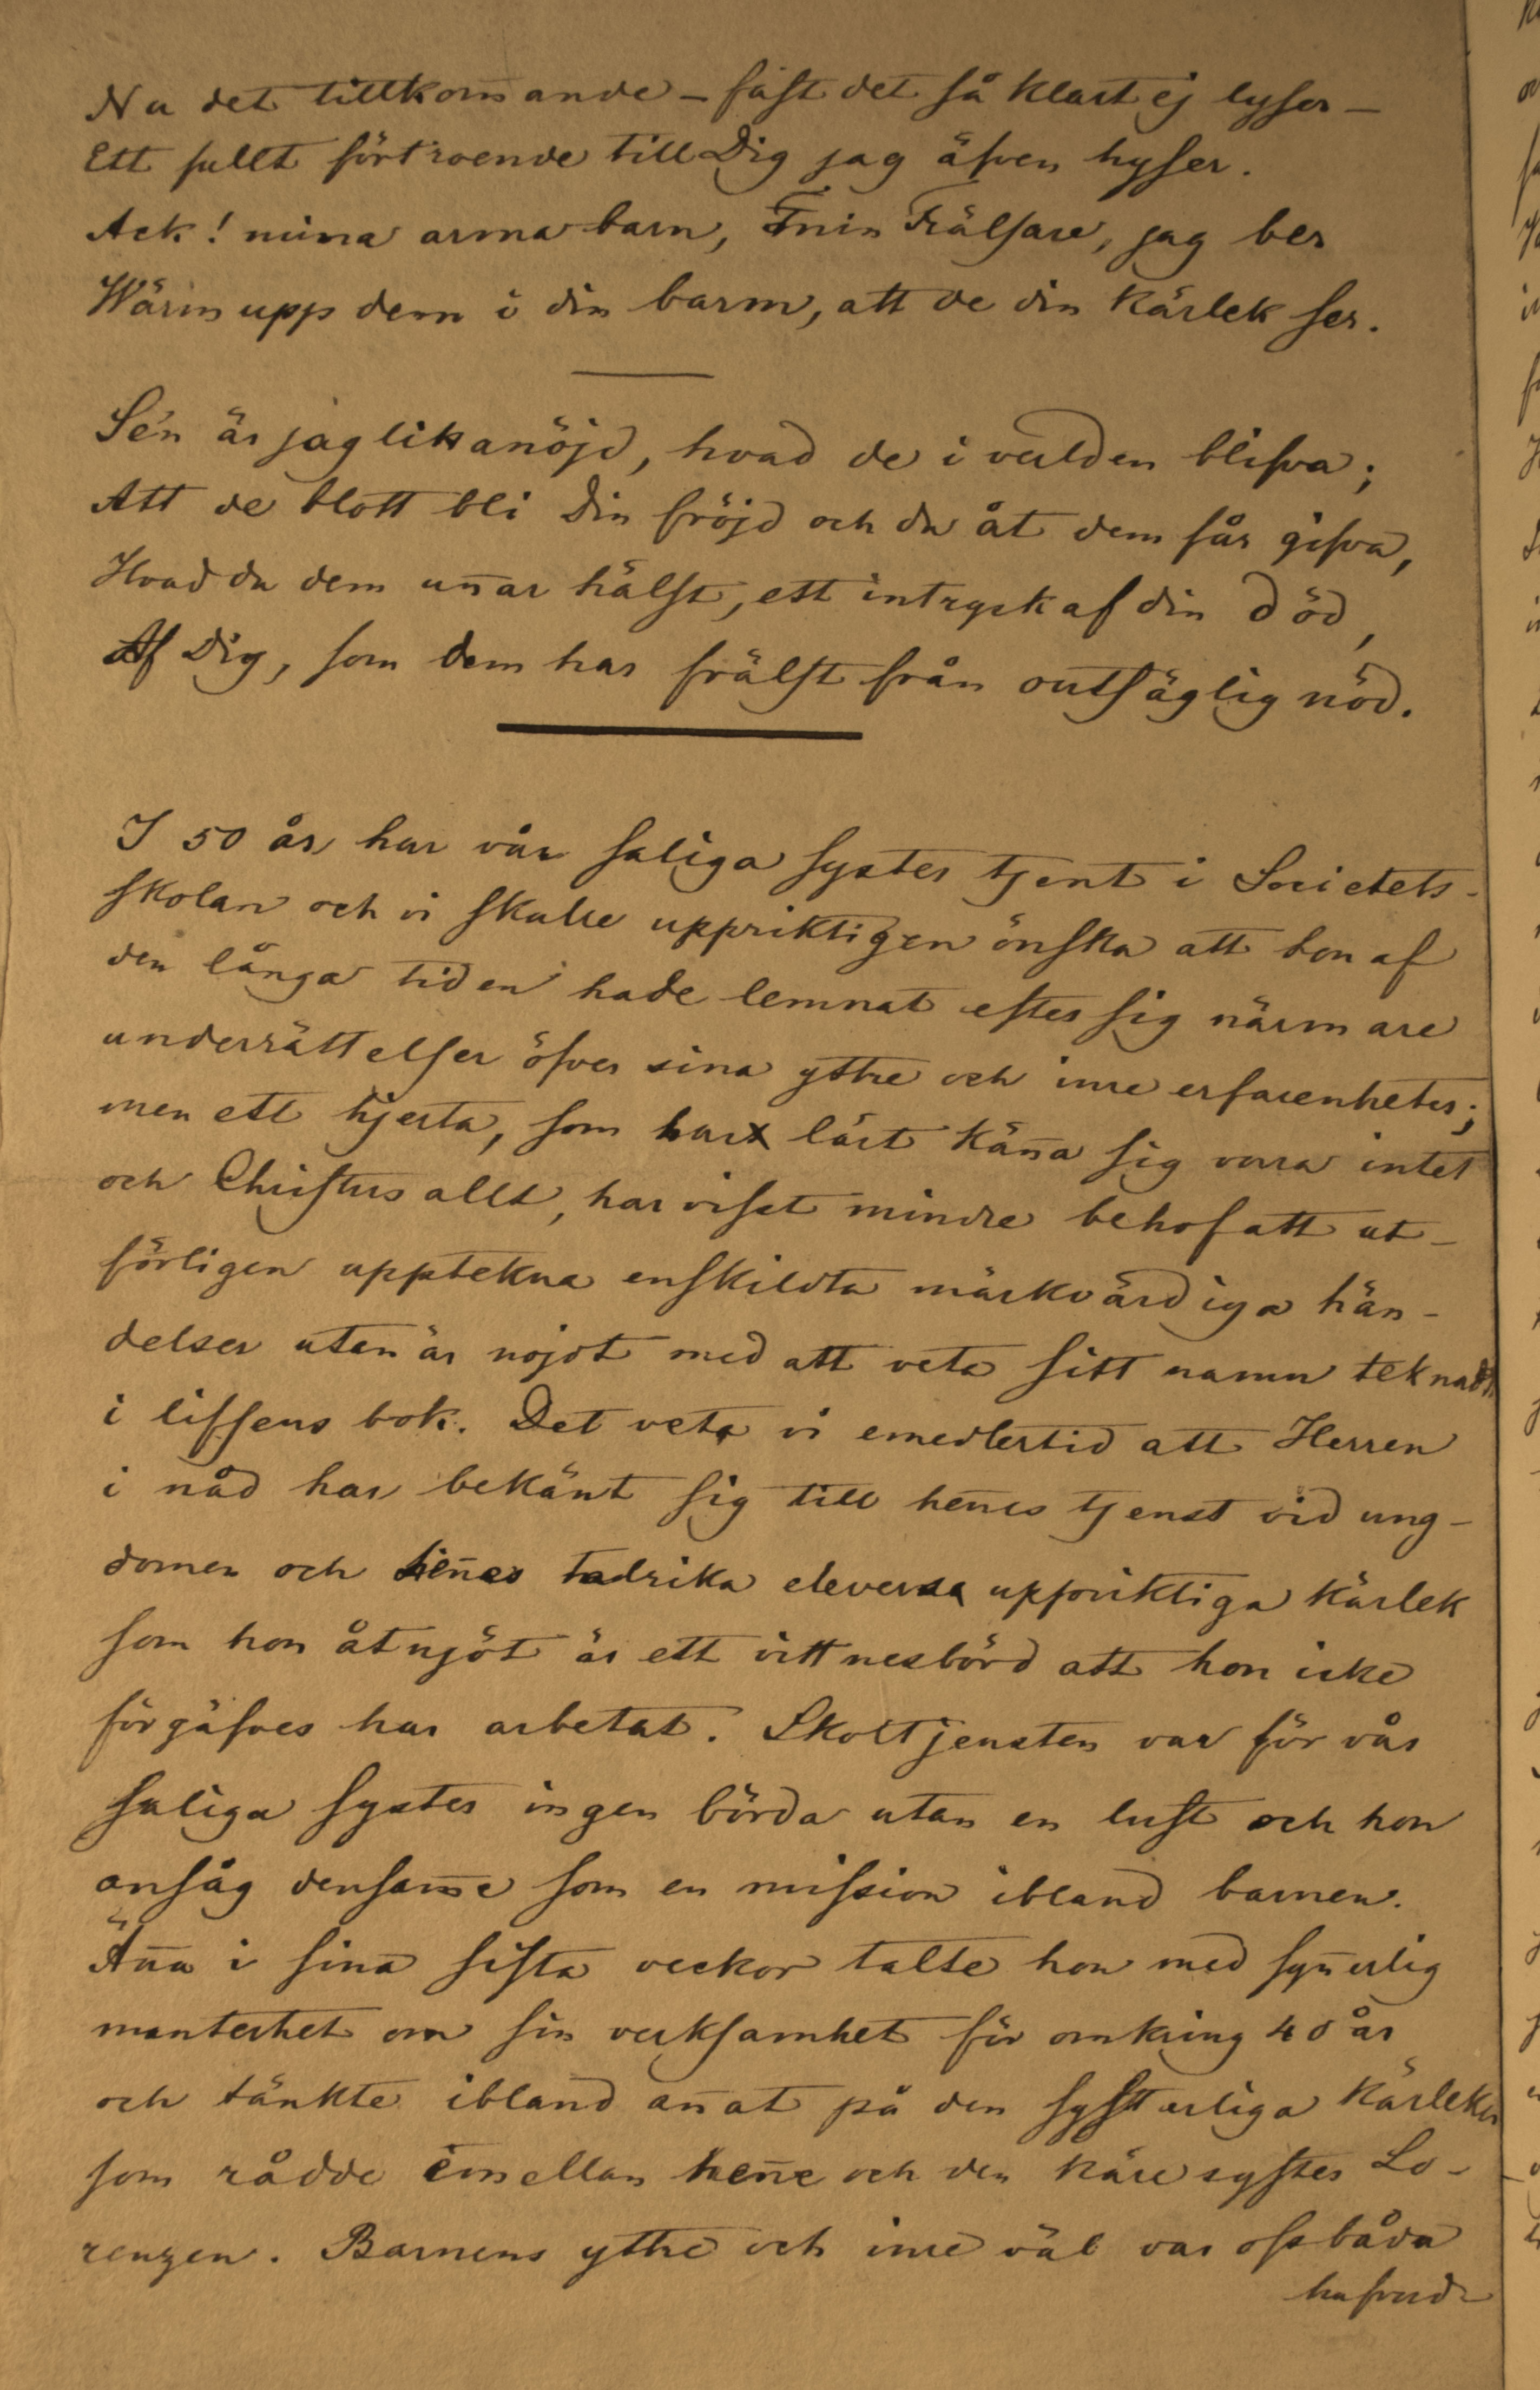 Nu det tillkom̄ande – fast det så klart ej lyser –
Ett fullt förtroende till Dig jag äfven hyser.
Ack! mina arma barn, min Frälsare, jag ber
Wärm upp dem i din barm, att de din kärlek ser.
Sén är jag lika nöjd, hvad de i verlden blifva;
Att de blott bli Din fröjd och du åt dem får gifva,
Hvad du dem un̄ar hälst, ett intryck af din död,
Af Dig, som dem har frälst från outsäglig nöd.
I 50 år har vår saliga syster tjent i Societets-
skolan och vi skulle uppriktigen önska att hon af
den långa tiden hade lemnat efter sig närmare
underrättelser öfver sina yttre och inre erfarenheter;
men ett hjerta, som har lärt kän̄a sig vara intet
och Christus allt, har visst mindre behof att ut-
förligen uppteknа enskildta märkvärdiga hän-
delser utan är nöjdt med att veta sitt namn teknadt
i lifsens bok. Det veta vi emedlertid att Herren
i nåd har bekänt sig till hen̄es tjenst vid ung-
domen och hen̄es talrika elevers uppriktiga kärlek
som hon åtnjöt är ett vittnesbörd att hon icke
förgäfves har arbetat. Skoltjensten var för vår
saliga syster ingen börda utan en lust och hon
ansåg densam̄e som en mission ibland barnen.
Än̄u i sina sista veckor talte hon med syn̄erlig
munterhet om sin verksamhet för omkring 40 år
och tänkte ibland an̄at på den systerliga kärleken
som rådde emellan hen̄e och den käre syster Lo-
renzen. Barnens yttre och inre väl var oss båda
hufvud-